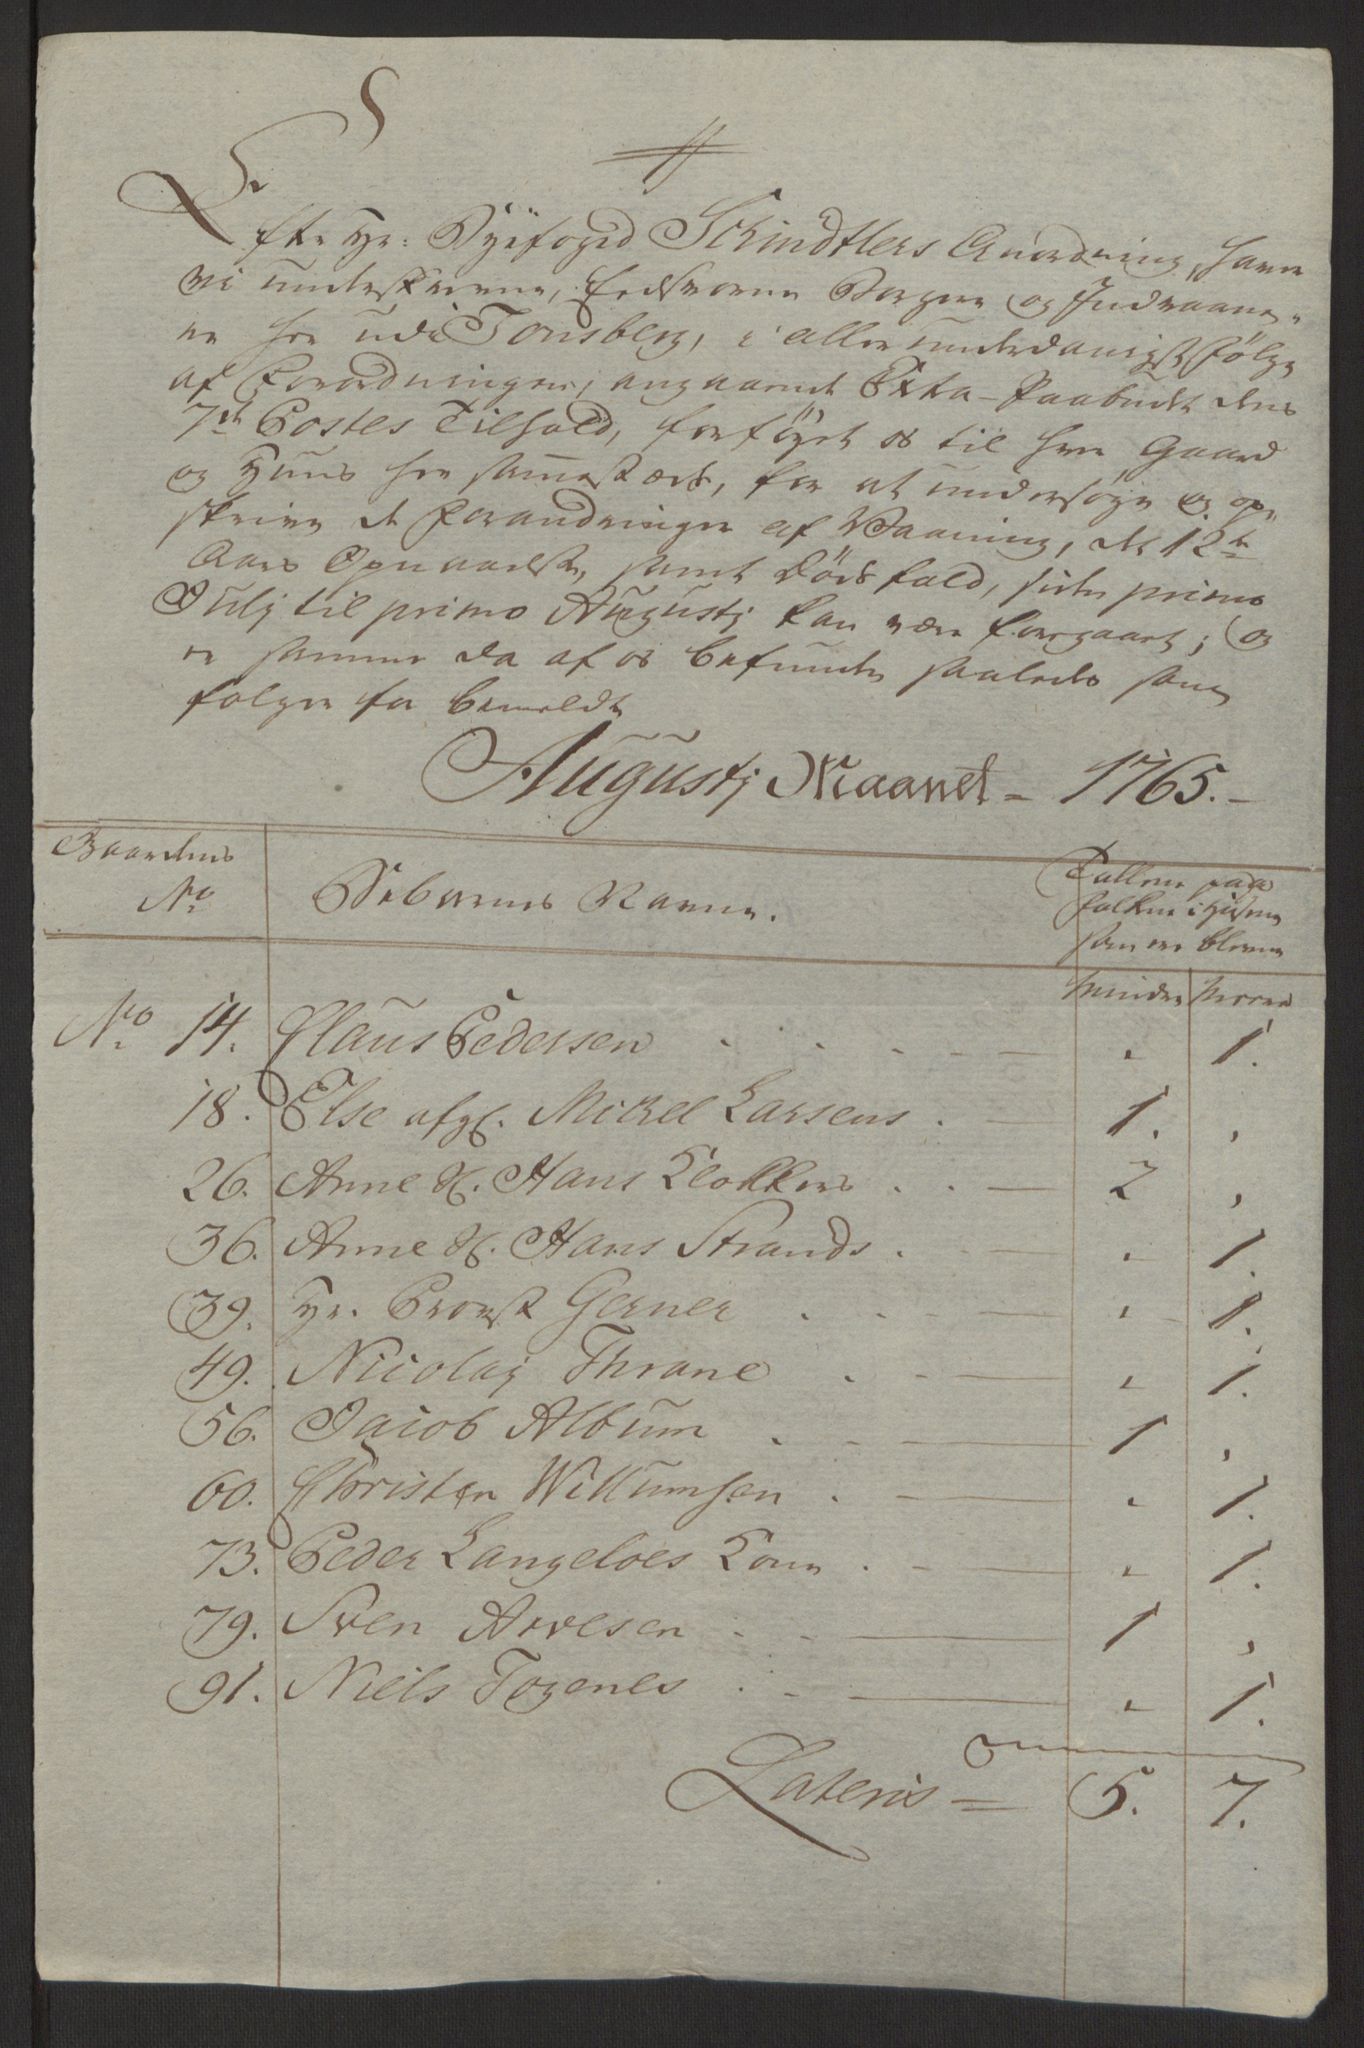 Efter Hr: Byefoged Schindtlers Anordning, have
vi underskrevne, Eedsvorne Borgere og Indvaane-
re her udi Tonsberg, i allerunderdanigst følge
af Forordningen, angaaende Extra-Paabudet dens
7de Postes Tilhold, forføyet os til hver Gaard
og Huus her sammestæds, for at undersøge og op-
skrive de Forandringer af Vaaning, det 12te
Aars Opnaaelse, samt Dödsfald, siden primo
Julj til primo Augustj kan være foregaaet; og
er samme da af os befunden saaledes som
følger for bemeldte
Augustj Maanet - 1765.-
Gaardens No
Beboernes Navne.
Tallene paa
folkene i Husene
som ere blevne
Mindre Meere
No 14. Claus Pedersen . . . . - - „ 1.
18. Else afg. Mickel Larsens . - 1. „
26. Anne S. Hans Klokkers . . - 2 „
36. Anne S. Hans Strands . - - „ 1.
39. Hr. Provst Gerner . . - - „ 1.
49. Nicolaj Thrane . - - „ 1.
56. Jacob Album . - - 1 „
60. Christen Willumsen . - „ 1.
73. Peder Langeloes Kone . - - „ 1.
79. Sven Arvesen . - - 1 „
91. Niels Togenes . - - „ 1.
Lateris = 5. 7.